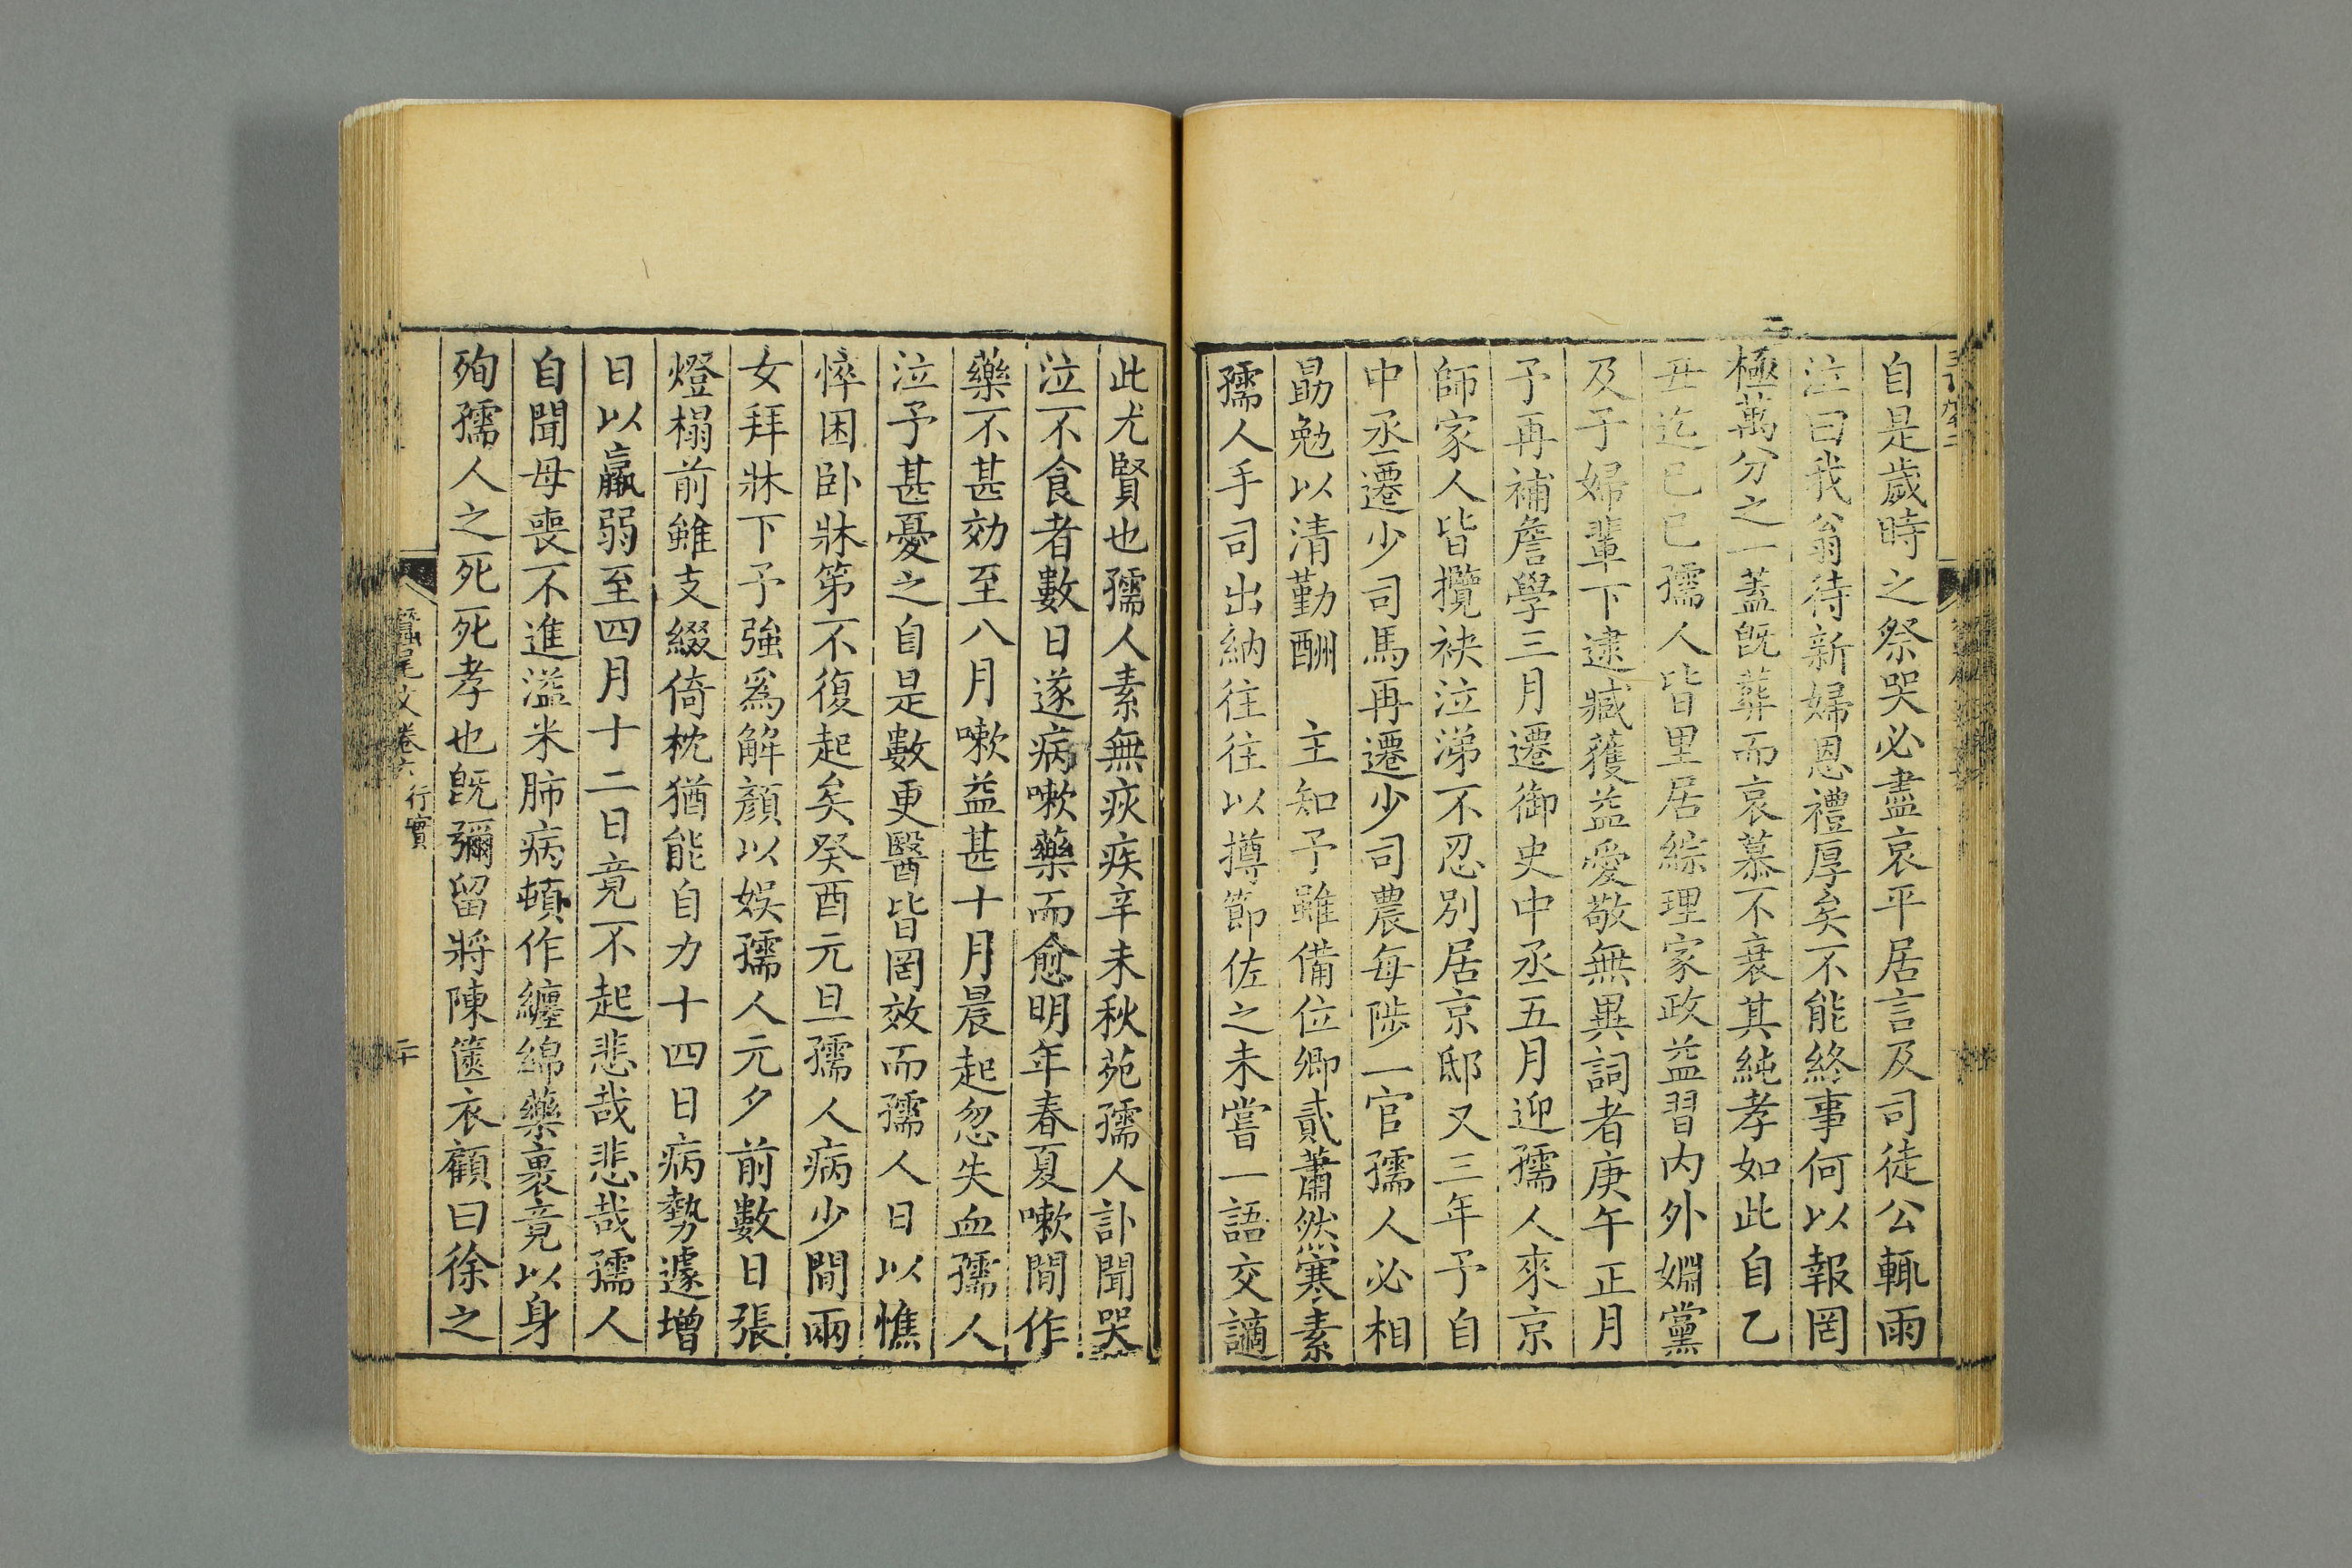 自是歲時之祭哭必盡哀平居言及司徒公輒雨
泣曰我翁待新婦恩禮厚矣不能終事何以報罔
極萬分之一蓋旣葬而哀慕不衰其純孝如此自乙
丑迄己巳孺人皆里居綜理家政益習内外婣黨
及子婦輩下逮臧獲益愛敬無異詞者庚午正月
予再補詹學三月遷御史中丞五月迎孺人來京
師家人皆攬袂泣涕不忍別居京邸又三年予自
中丞遷少司馬再遷少司農每陟一官孺人必相
勗勉以清勤酬　主知予雖備位卿貳蕭然寒素
孺人手司出納往往以撙節佐之未嘗一語交讁
此尤賢也孺人素無疢疾辛未秋苑孺人訃聞哭
泣不食者數日遂病嗽藥而愈明年春夏嗽間作
藥不甚効至八月嗽益甚十月晨起忽失血孺人
泣予甚憂之自是數更醫皆罔效而孺人日以憔
悴困卧牀笫不復起矣癸酉元旦孺人病少間兩
女拜牀下予強爲解顏以娱孺人元夕前數日張
燈榻前雖支綴倚枕猶能自力十四日病勢遽增
日以羸弱至四月十二日竟不起悲哉悲哉孺人
自聞母喪不進溢米肺病頓作纏綿藥裹竟以身
殉孺人之死死孝也旣彌留將陳篋衣顧曰徐之
蠶尾文卷六 行實
二十